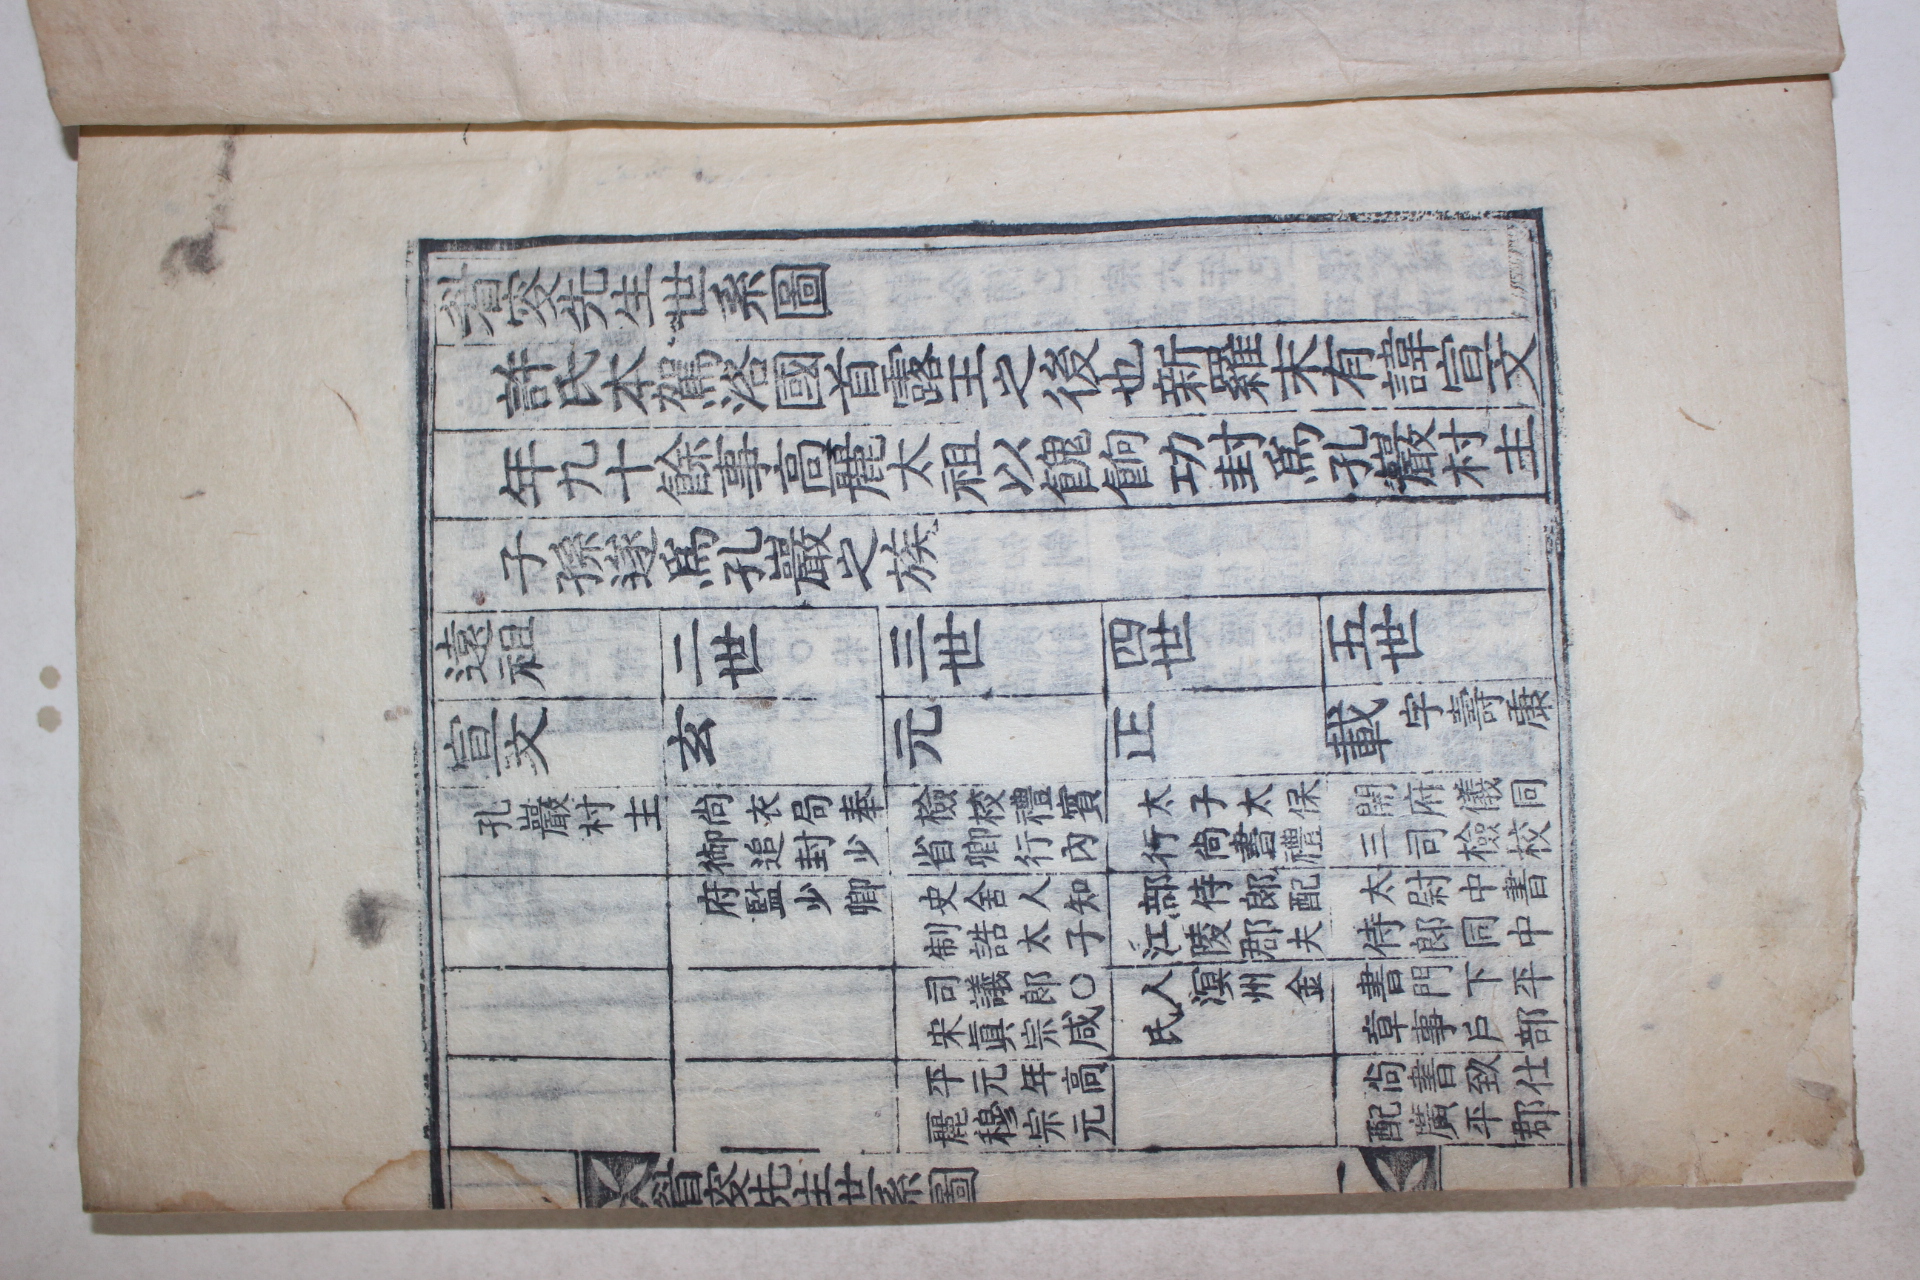 先生世系圖
許氏本駕洛國首露王之後也新羅末有諱宣文
年九十餘事高麗太祖以餽餉功封爲孔巖村主
子孫遂爲孔巖之族
遠祖
宣文
孔巖村主
二世
玄
尚衣局奉
御追封少
府監少卿
三世
元
檢校禮賓
省卿行內
史舍人知
制誥太子
司議郎〇
宋眞宗咸
平元年高
麗穆宗元
四世
正
太子太保
行尚書禮
部侍郞配
江陵郡夫
人溟州金
氏
五世
載 字壽康
開府儀同
三司檢校
太尉中書
侍郎同中
書門下平
章事戶部
尚書致仕
配廣平郡
先生世系圖
一